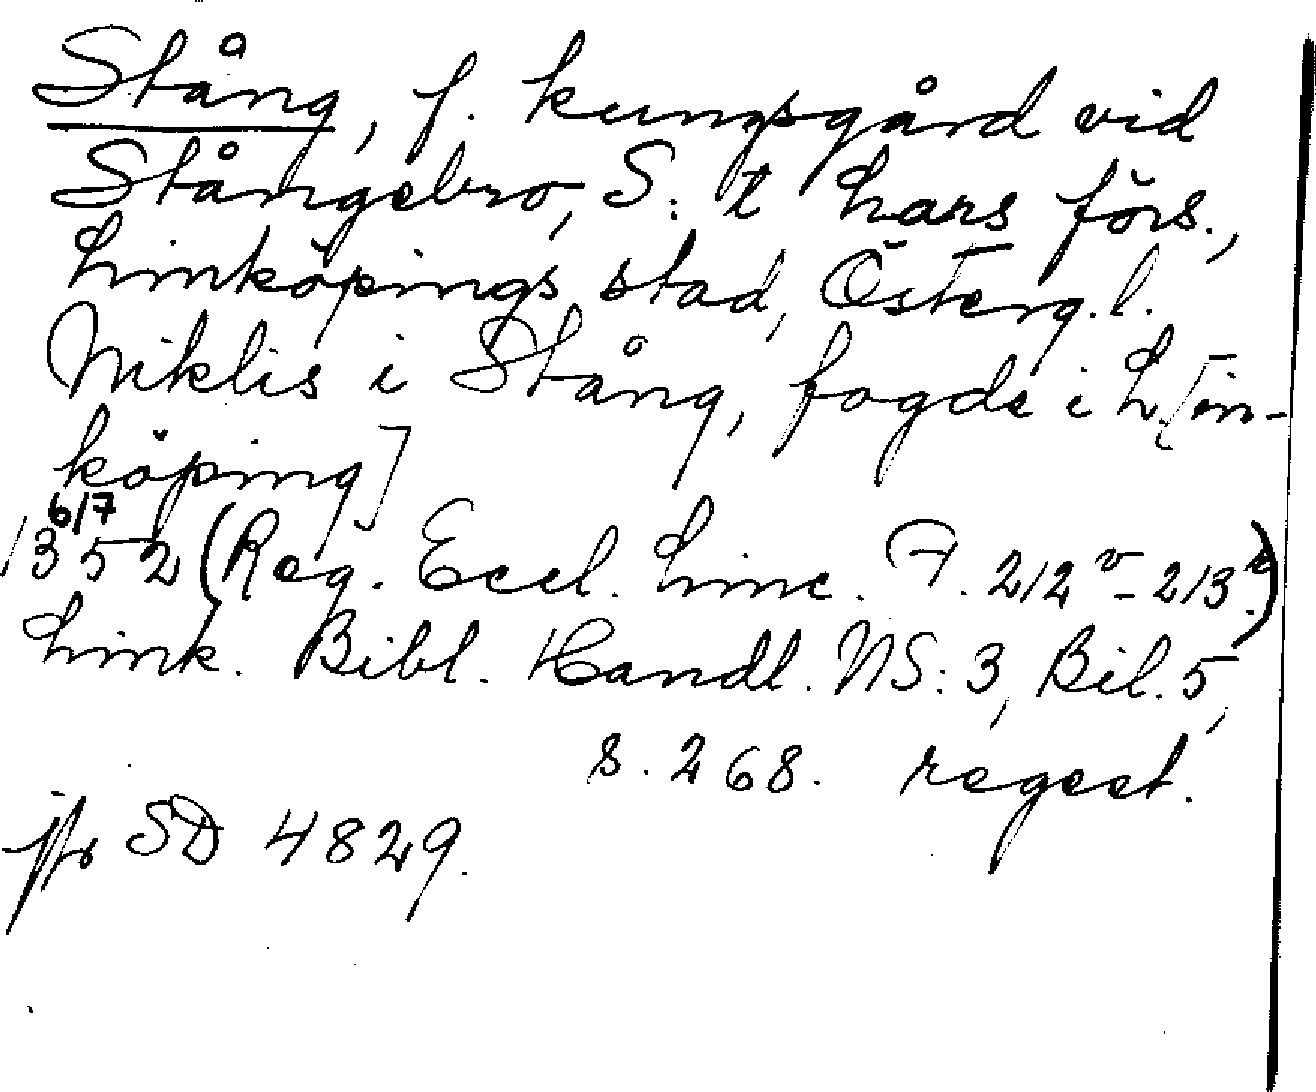 Stång, f. kungsgård vid
Stångebro, S:t Lars förs.,
Linköpings stad, Österg.l.
Niklis i Stång, fogde i L[in-
köping]
6/7
1352 (Reg. Eccl. Linc. F. 212v-213r.)
Link. Bibl. Handl. NS:3, Bil. 5,
s. 268. regest.
jfr SD 4829.